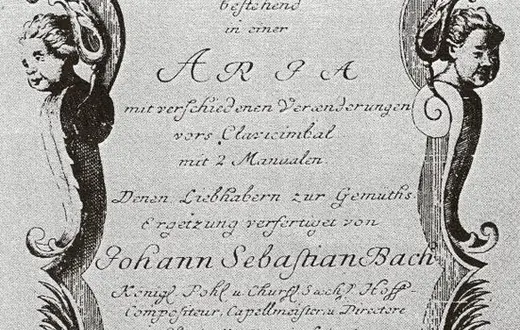 bestehend
in einer
ARIA
mit verschiedenen Verænderungen
vors Clavicimbal
mit 2 Manualen.
Denen Liebhabern zur Gemüths-
Ergetzung verfertiget von
Johann Sebastian Bach
Königl. Pohl. u. Churfl. Sæchs. Hoff-
Compositeur, Capellmeister, u. Directore